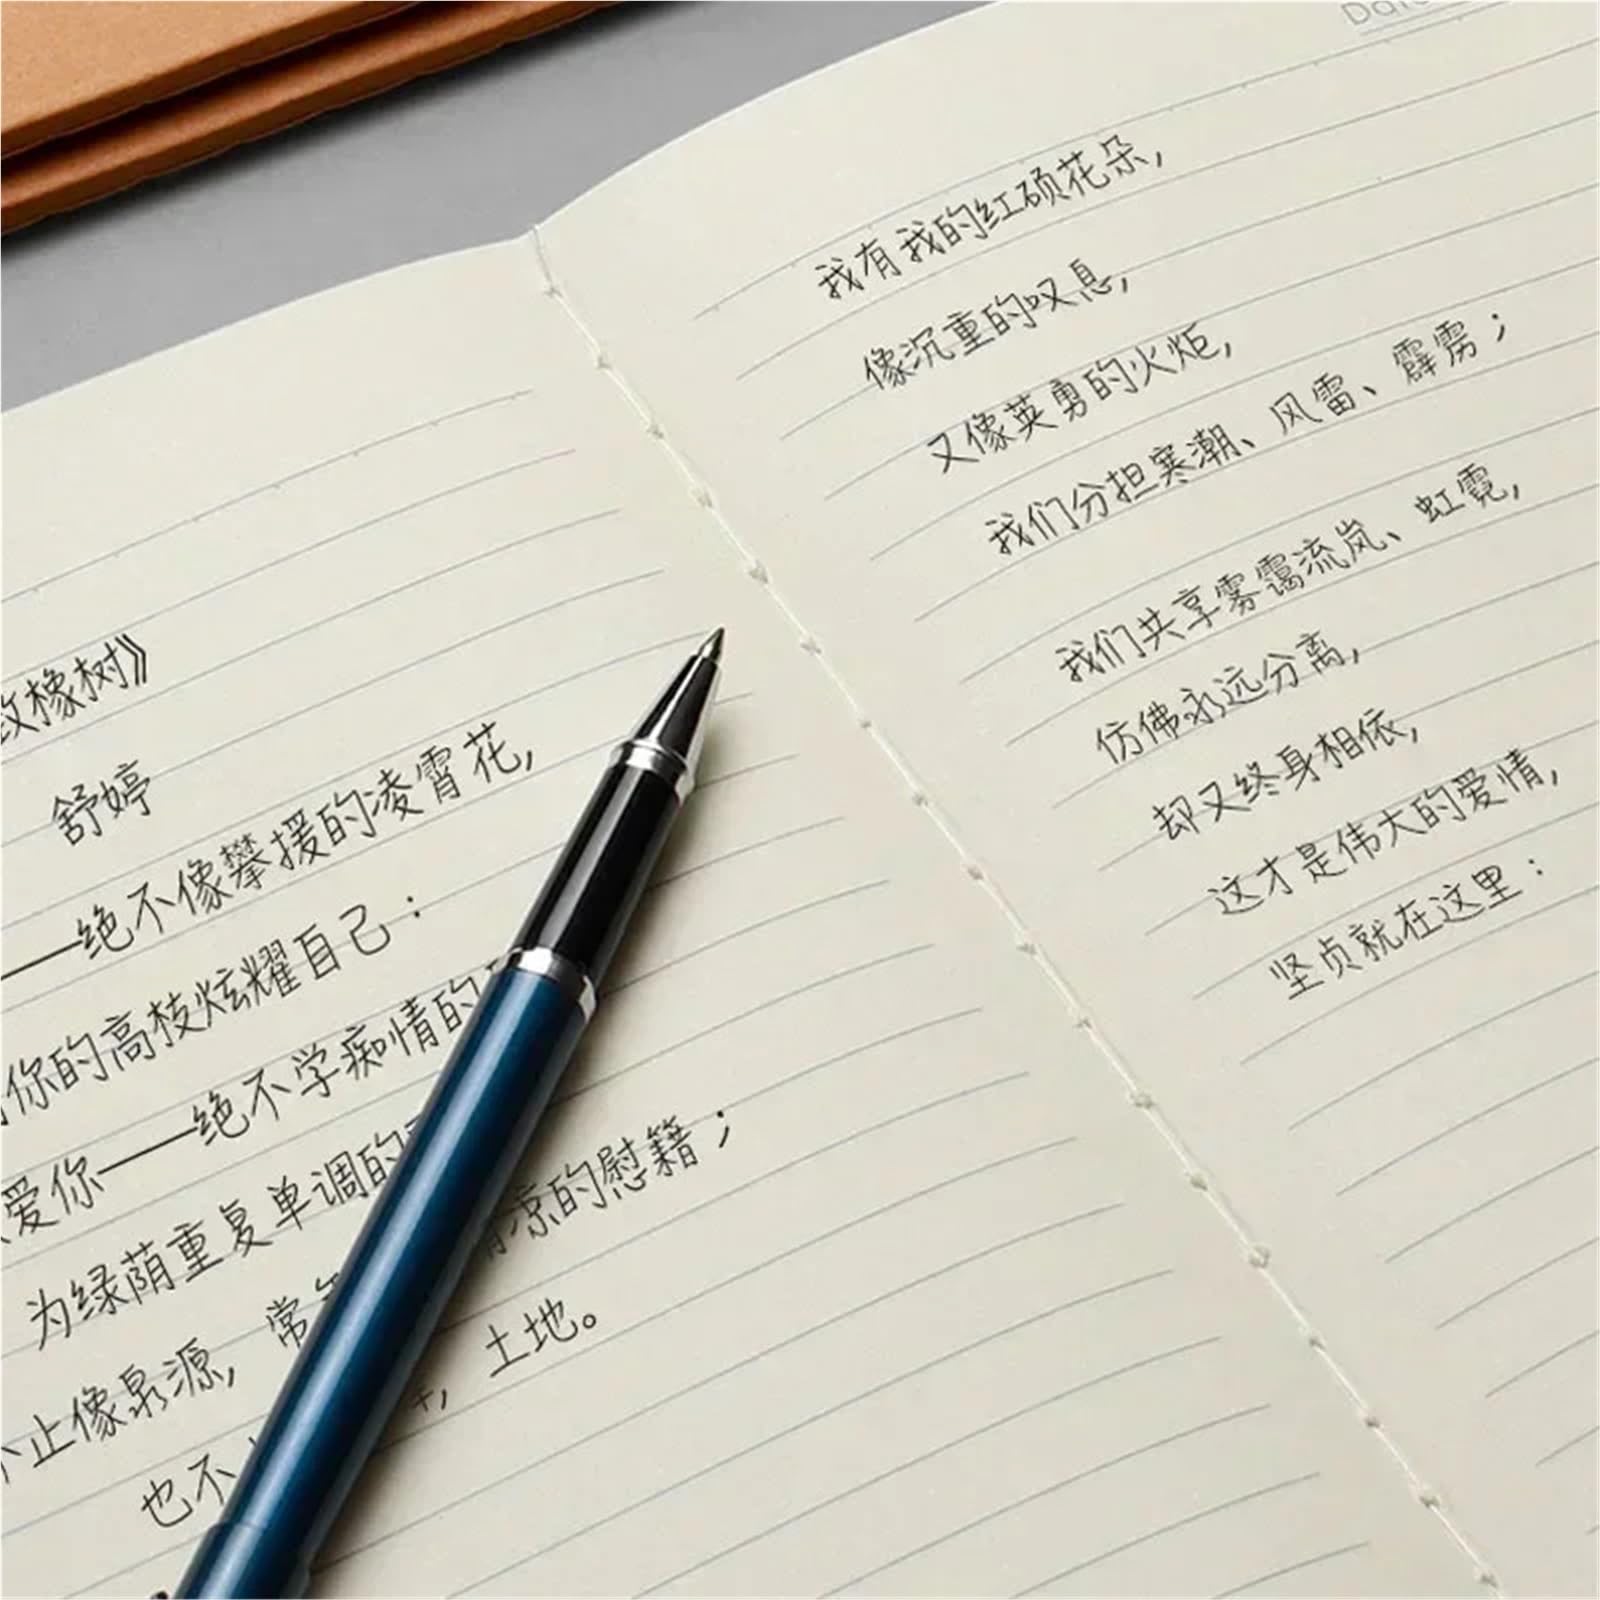 致橡树》
舒婷
——绝不像攀援的凌霄花,
你的高枝炫耀自己:
爱你——绝不学痴情的
为绿荫重复单调的
止像泉源, 常 凉的慰籍;
也不 土地。
Date
我有我的红硕花朵,
像沉重的叹息,
又像英勇的火炬,
我们分担寒潮、风雷、霹雳;
我们共享雾霭流岚、虹霓,
仿佛永远分离,
却又终身相依,
这才是伟大的爱情,
坚贞就在这里: